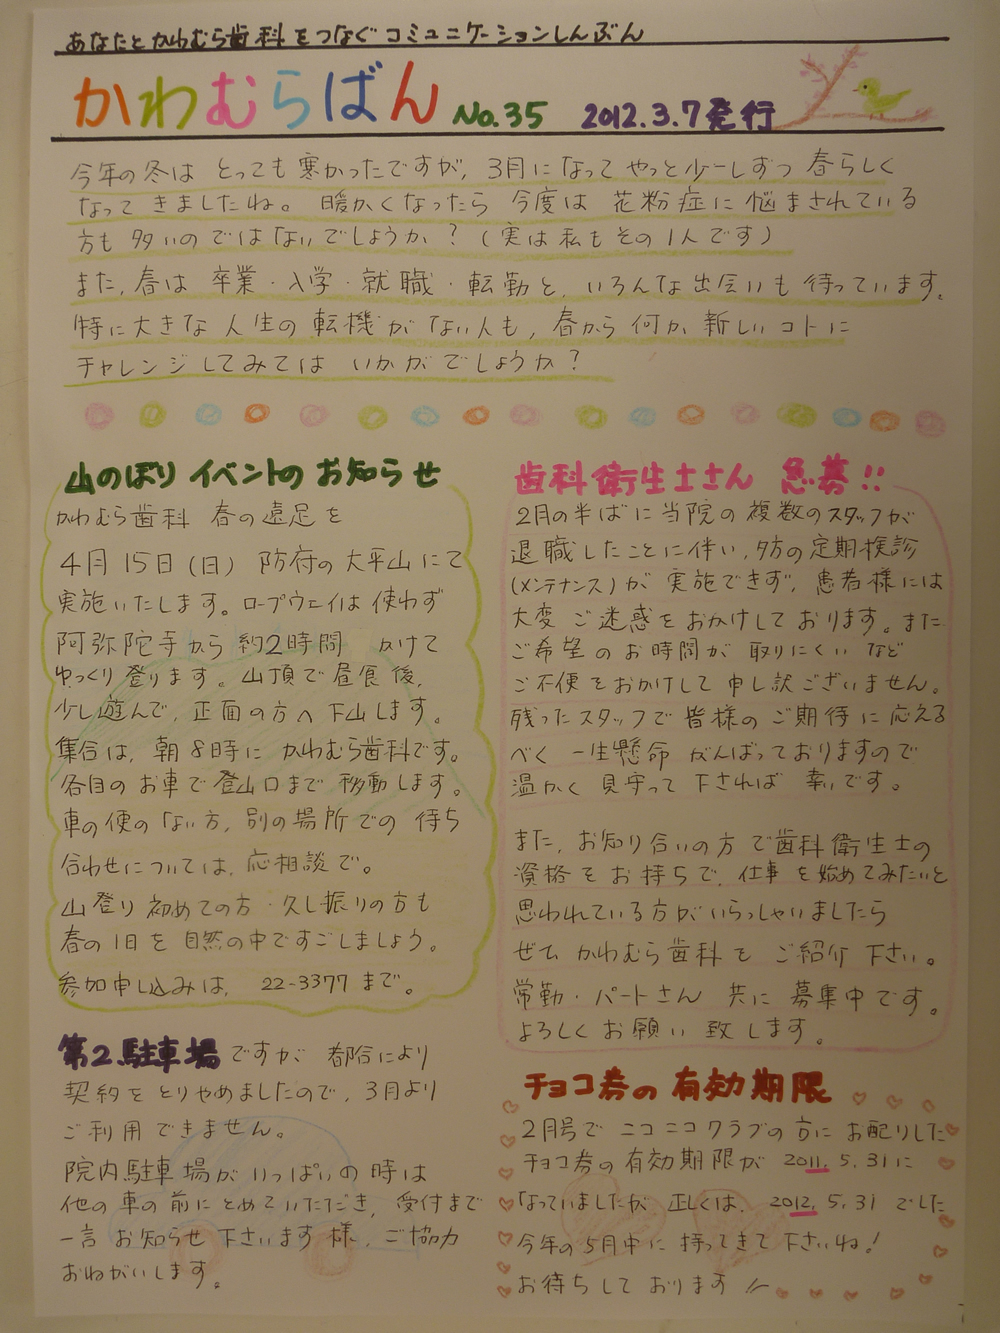 あなたとかわむら歯科をつなぐコミュニケーションしんぶん
かわむらばん No.35 2012.3.7発行
今年の冬は とっても寒かったですが、3月になって やっと少ーしずつ 春らしく
なって きましたね。 暖かくなったら 今度は 花粉症に悩まされている
方も 多いのではないでしょうか？(実は私もその1人です)
また、春は 卒業・入学・就職・転勤と、いろんな出会いも 待っています。
特に大きな 人生の転機がない人も、春から何か新しいコトに
チャレンジしてみては いかがでしょうか？
山のぼりイベントのお知らせ
かわむら歯科 春の遠足を
4月15日(日) 防府の大平山にて
実施いたします。ロープウェイは使わず
阿弥陀寺から約2時間 かけて
ゆっくり登ります。山頂で昼食後、
少し遊んで、正面の方へ下山します。
集合は、朝8時に かわむら歯科です。
各自の お車で登山口まで 移動します。
車の便のない方、別の場所での 待ち
合わせについては、応相談で。
山登り初めての方・久し振りの方も
春の1日を 自然の中ですごしましょう。
参加申し込みは、 22-3377まで。
第2駐車場ですが 都合により
契約をとりやめましたので、3月より
ご利用できません。
院内駐車場が いっぱいの時は
他の車の前にとめていただき、受付まで
一言 お知らせ 下さいます様、ご協力
おねがいします。
歯科衛生士さん 急募!!
2月の半ばに当院の複数のスタッフが
退職したことに伴い、夕方の定期検診
(メンテナンス)が 実施できず、患者様には
大変 ご迷惑をおかけしております。また
ご希望のお時間が 取りにくいなど
ご不便をおかけして申し訳ございません。
残ったスタッフで皆様のご期待に応える
べく 一生懸命 がんばっておりますので
温かく見守って下されば 幸いです。
また、お知り合いの方で歯科衛生士の
資格をお持ちで、仕事を始めてみたいと
思われている方がいらっしゃいましたら
ぜひ かわむら歯科を ご紹介 下さい。
常勤・パートさん 共に 募集中です。
よろしくお願い致します。
チョコ券の有効期限
2月号で ニコニコクラブの方に お配りした
チョコ券の有効期限が 2011.5.31に
なっていましたが 正しくは、 2012.5.31 でした
今年の5月中に 持ってきて下さいね！
お待ちしております